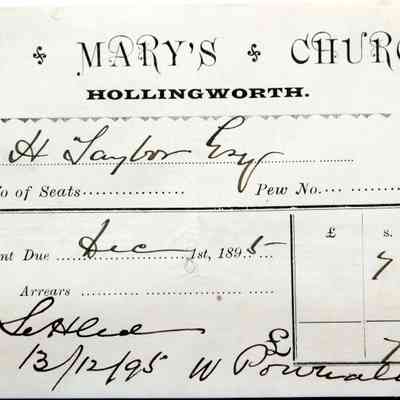 MARY'S CHURC
HOLLINGWORTH.
H Taylor Esq
o of Seats.................. Pew No.
£ s.
nt Due Dec 1st, 1895
7
Arrears
Settled £ 7
13/12/95 W